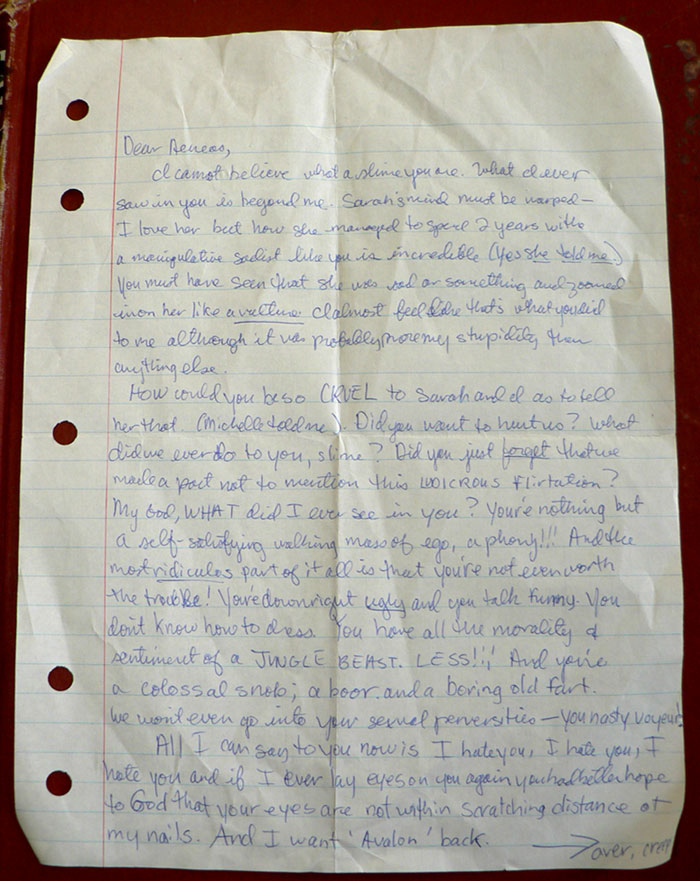 Dear Aeneas,
I cannot believe what a slime you are. What I ever
saw in you is beyond me. Sarah's mind must be warped—
I love her but how she managed to spend 2 years with
a manipulative sadist like you is incredible (Yes she told me.)
You must have seen that she was sad or something and zoomed
in on her like a vulture. I almost feel like that's what you did
to me although it was probably more my stupidity than
anything else.
How could you be so CRUEL to Sarah and I as to tell
her that. (Michelle told me). Did you want to hurt us? What
did we ever do to you, slime? Did you just forget that we
made a pact not to mention this LUDICROUS flirtation?
My God, WHAT did I ever see in you? You're nothing but
a self-satisfying walking mass of ego, a phony!!! And the
most ridiculous part of it all is that you're not even worth
the trouble! You're downright ugly and you talk funny. You
don't know how to dress. You have all the morality &
sentiment of a JUNGLE BEAST. LESS!!! And you're
a colossal snob; a boor. and a boring old fart.
We won't even go into your sexual perversities — you nasty voyeur!
All I can say to you now is I hate you, I hate you, I
hate you and if I ever lay eyes on you again you had better hope
to God that your eyes are not within scratching distance of
my nails. And I want 'Avalon' back.
→ over, creep